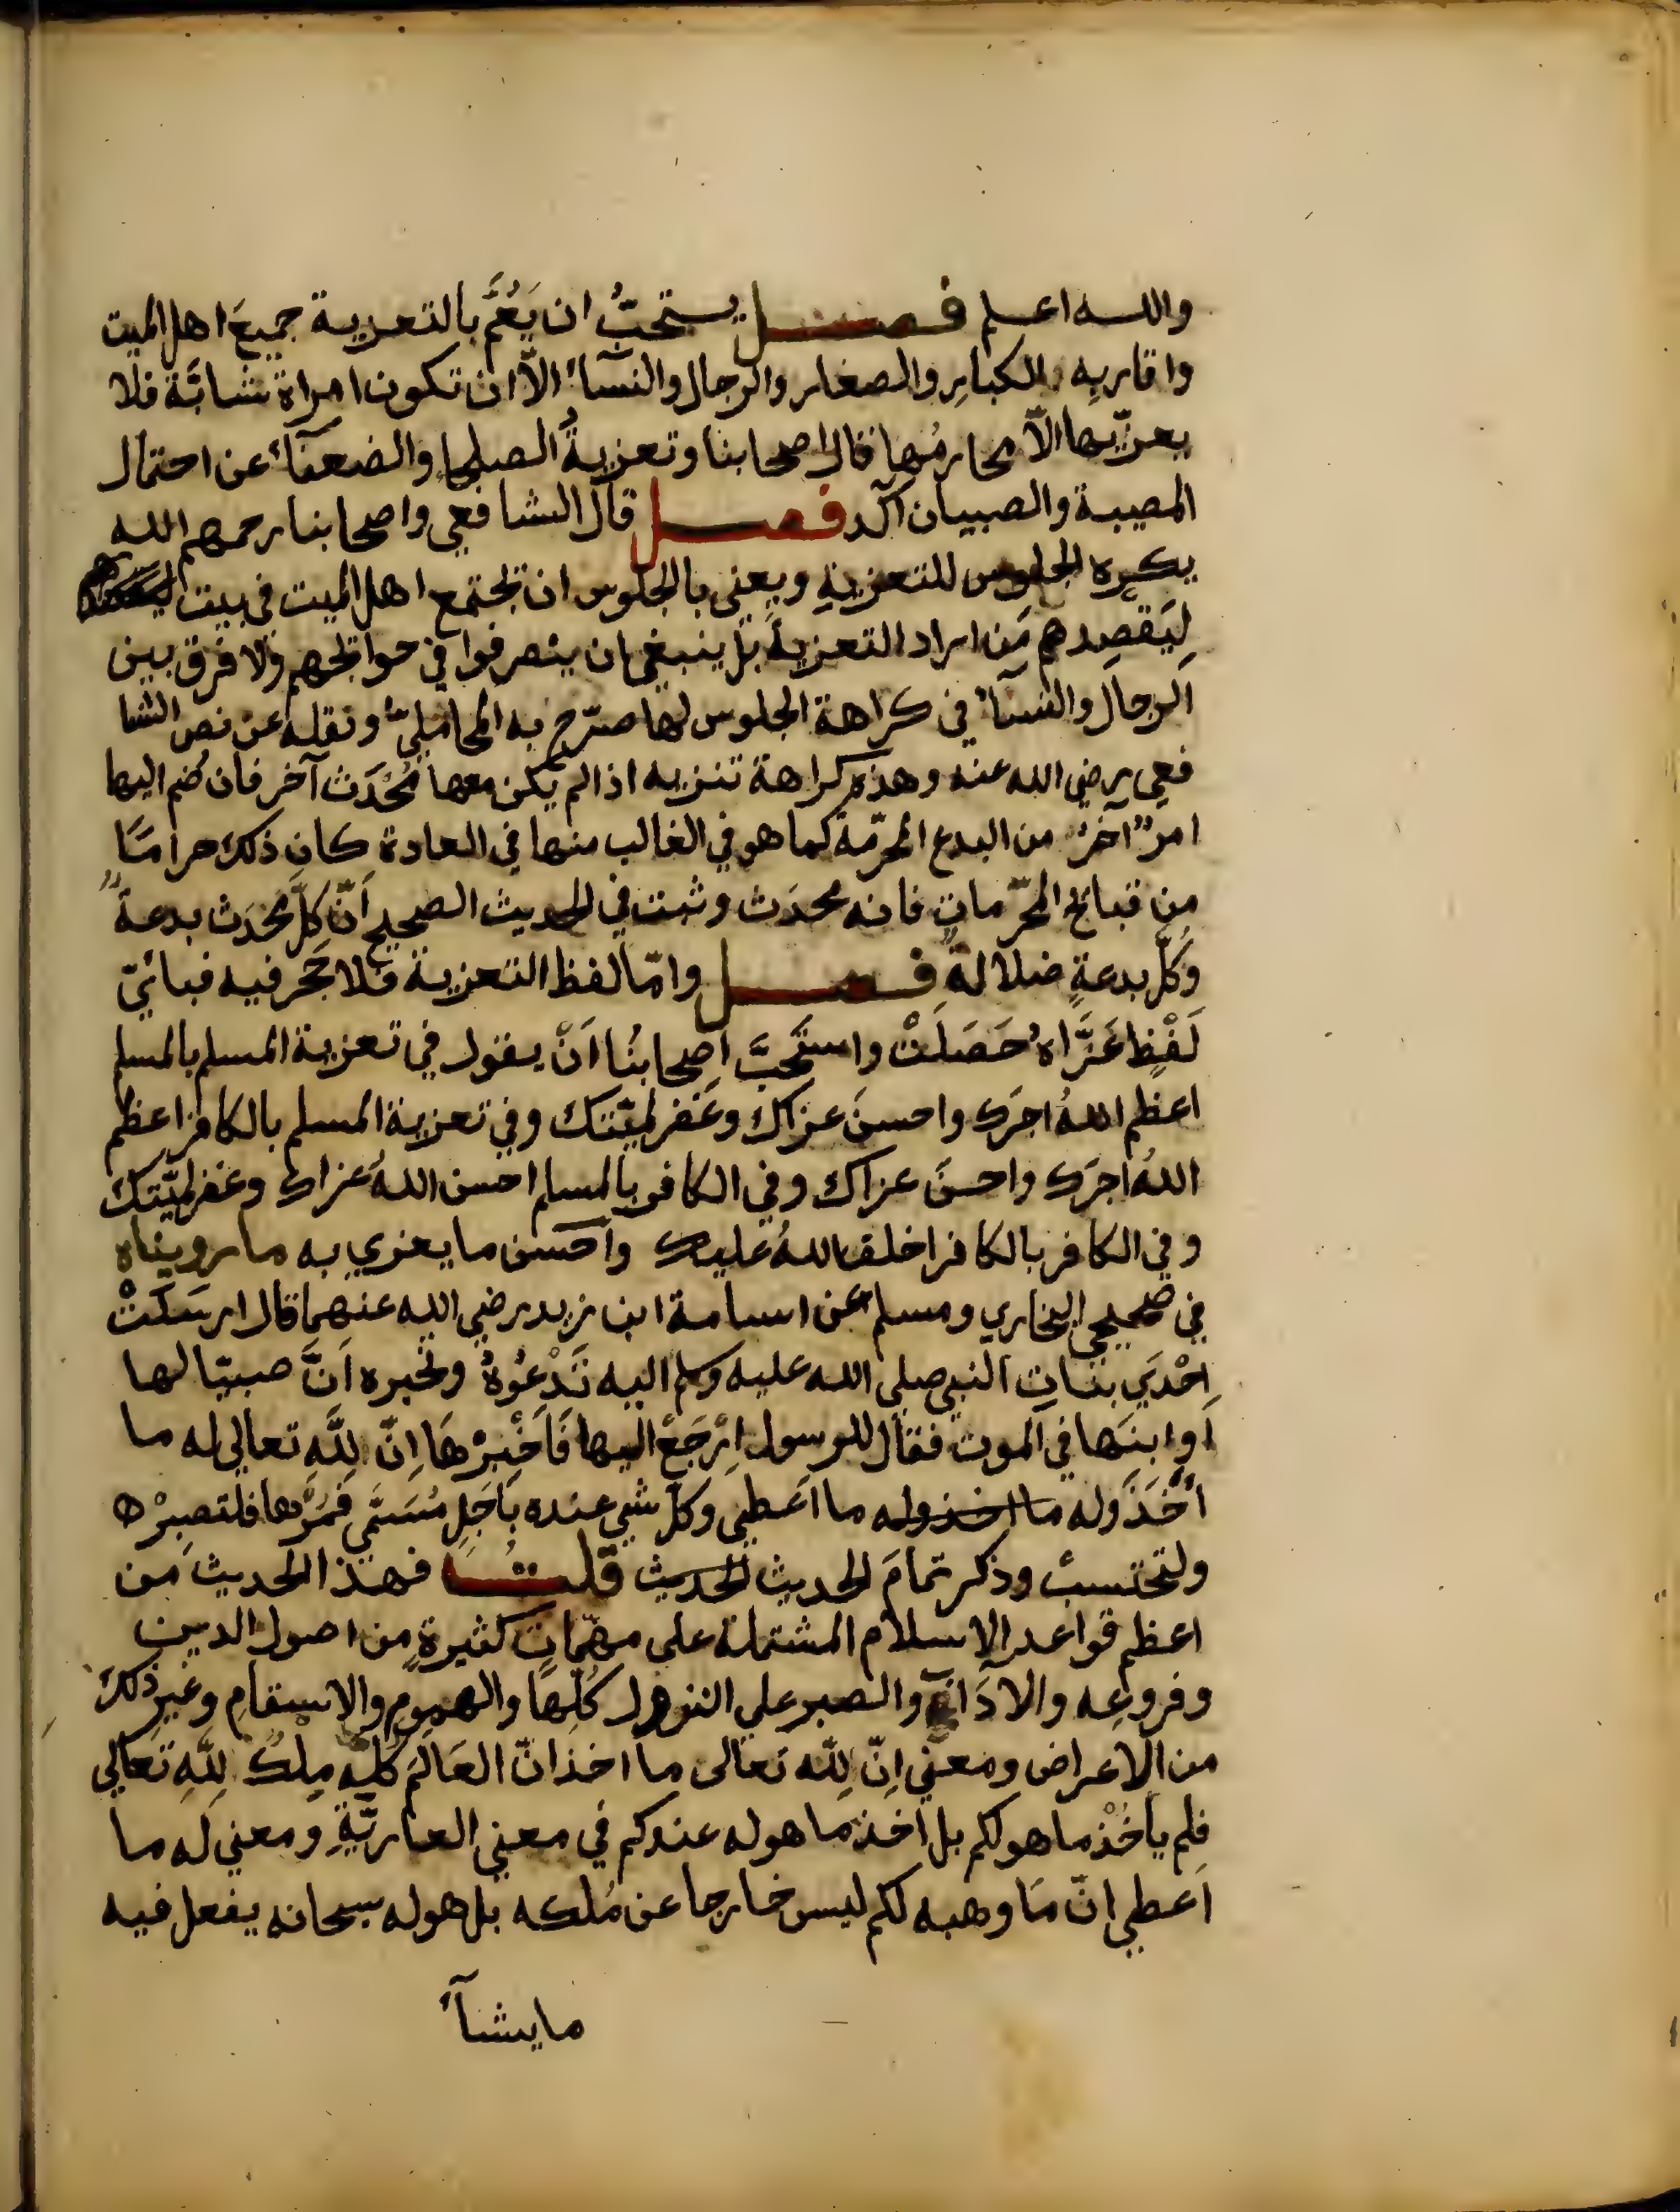 والله اعلم فصل يستحبُّ ان يَعُمَّ بالتعزية جميعَ اهل الميت
واقاربِه الكبارِ والصغار والرجال والنسآءُ الاّ ان تكون امراة شابَّة فلا
يعزّيها الاّ محارمُها قال اصحابنا وتعزيةُ الصلحا والضعفآء عن احتمال
المصيبة والصبيان آكد فصل قال الشافعي واصحابنا رحمهم الله
يكره الجلوس للتعزيةِ ويعني بالجلوس ان تجتمع اهل الميت في بيت
لِيَقصِدهم مَن اراد التعزيةَ بل ينبغي ان ينصرفوا في حوائجهم ولا فرق بين
الرجال والنسآءُ في كراهة الجلوس لها صرّح به المحامليّ ونقله عن نص الشا
فعي رضي الله عنه وهذه كراهة تنزيه اذا لم يكن معها مُحْدَث آخر فان ضم اليها
امرٌ آخرُ من البدع المحرّمة كما هو في الغالب منها في العادة كان ذلك حرامًا
من قبائح المحرّماتِ فانه محدَث وثبت في الحديث الصحيح اَنّ كلَّ مُحْدَث بدعةٌ
وكلّ بدعةٍ ضلالةٌ فصل وامّا لفظ التعزية فلا حَجر فيه فبائيّ
لَفْظٍ عَزَّاهُ حَصَلَتْ واستَحَبَّ اصحابنُا اَنْ يقول في تعزية المسلم بالمسلم
اعظم اللهُ اجرَك واحسنَ عزاك وغَفر لميّتك وفي تعزية المسلم بالكافر اعظم
اللهُ اجرَك واحسنَ عزاك وفي الكافر بالمسلم احسن اللهُ عزاك وغفر لميّتك
وفي الكافر بالكافر اخلف اللهُ عليك واَحسن ما يعزي به ما رويناه
في صحيحي البخاري ومسلم عن اسامة ابن زيد رضي الله عنهما قال ارسَلَتْ
اِحْدَي بناتِ النبي صلى الله عليه وسلم اليه تَدْعُوهُ وتخبره اَنَّ صبيّا لها
اَو ابنَها في الموت فقال للرسول اِرْجَعْ اليها فَاَخْبِرْهَا اِنّ لِلَّهِ تعالى له ما
اَخَذَ وله ما اخذ وله ما اَعطي وكلّ شي عنده بِاَجَلٍ مُسَمَّي فَمُرْها فلتصبِرْ ها
ولتحتسبْ وذكر تمامَ الحديث الحديث قلتُ فهذا الحديث من
اعظم قواعد الاسلام المشتملة على مهمّاتٍ كثيرةٍ من اصول الدين
وفروعِه والآدَابِ والصبرِ علي النوازل كُلِّهَا والهمومِ والاسقامِ وغيرِ ذلك
من الاعراض ومعني اِنّ لِلّه تعالى ما اخذ انّ العَالَمَ كلّه مِلْكٌ لِلَّهِ تَعَالي
فلم ياَخُذْ ما هو لكم بل اَخذ ما هو له عندكم في معني العاريَّةِ ومعني لَه ما
اَعطي انّ مَا وهبه لكم ليس خارجا عن مُلكه بل هو له سبحانه يفعل فيه
ما يشآءُ